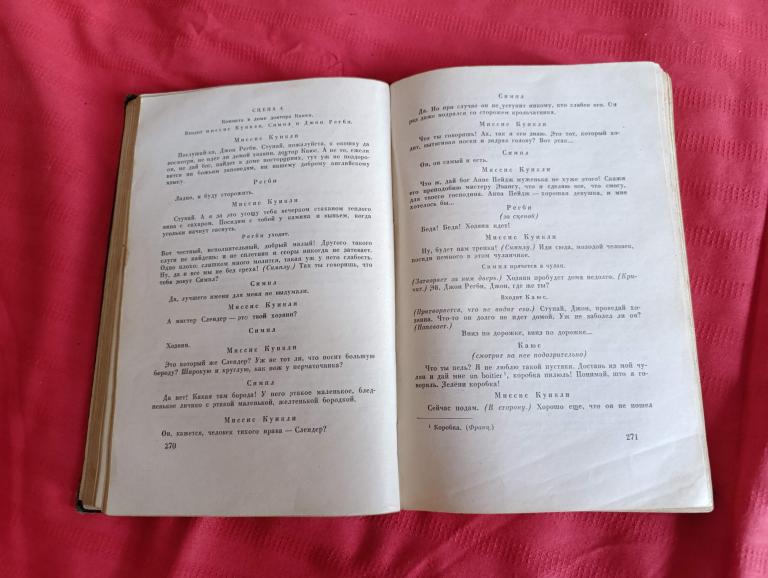 СЦЕНА 4
Комната в доме доктора Каюса.
Входят миссис Куикли, Симпл и Джон Регби.
Миссис Куикли
Послушай-ка, Джон Регби. Ступай, пожалуйста, к окошку да
посмотри, не идет ли домой хозяин, доктор Каюс. А не то, ежели
он, не дай бог, найдет в доме посторонних, тут уж не поздоро-
вится ни божьим заповедям, ни нашему доброму английскому
языку.
Регби
Ладно, я буду сторожить.
Миссис Куикли
Ступай. А я за это угощу тебя вечерком стаканом теплого
вина с сахаром. Посидим с тобой у камина и выпьем, когда
угольки начнут гаснуть.
Регби уходит.
Вот честный, исполнительный, добрый малый! Другого такого
слуги не найдешь: и не сплетник и ссоры никогда не затевает.
Одно плохо: слишком много молится, такая уж у него слабость.
Ну, да и все мы не без греха! (Симплу.) Так ты говоришь, что
тебя зовут Симпл?
Симпл
Да, лучшего имени для меня не выдумали.
Миссис Куикли
А мистер Слендер — это твой хозяин?
Симпл
Хозяин.
Миссис Куикли
Это который же Слендер? Уж не тот ли, что носит большую
бороду? Широкую и круглую, как нож у перчаточника?
Симпл
Да нет! Какая там борода! У него этакое маленькое, блед-
ненькое личико с этакой маленькой, желтенькой бородкой.
Миссис Куикли
Он, кажется, человек тихого нрава — Слендер?
270
Симпл
Да. Но при случае он не уступит никому, кто слабее его. Он
раз даже подрался со сторожем крольчатника.
Миссис Куикли
Что ты говоришь! Ах, так я его знаю. Это тот, который хо-
дит, вытягивая носки и задрав голову? Вот этак...
Симпл
Он, он самый и есть.
Миссис Куикли
Что ж, дай бог Анне Пейдж муженька не хуже этого! Скажи
его преподобию мистеру Эвансу, что я сделаю все, что смогу,
для твоего господина. Анна Пейдж — хорошая девушка, и мне
хотелось бы...
Регби
(за сценой)
Беда! Беда! Хозяин идет!
Миссис Куикли
Ну, будет нам трепка! (Симплу.) Иди сюда, молодой человек,
посиди немного в этом чуланчике.
Симпл прячется в чулан.
(Затворяет за ним дверь.) Хозяин пробудет дома недолго. (Кри-
чит.) Эй, Джон Регби, Джон, где же ты?
Входит Каюс.
(Притворяется, что не видит его.) Ступай, Джон, проведай хо-
зяина. Что-то он долго не идет домой. Уж не заболел ли он?
(Напевает.)
Вниз по дорожке, вниз по дорожке...
Каюс
(смотрит на нее подозрительно)
Что ты пель? Я не люблю такой пустяки. Достань из мой чу-
лан и дай мне un boitier¹, коробка пилюль! Понимай, што я го-
вориль. Зелёни коробка!
Миссис Куикли
Сейчас подам. (В сторону.) Хорошо еще, что он не пошел
¹ Коробка. (Франц.)
271